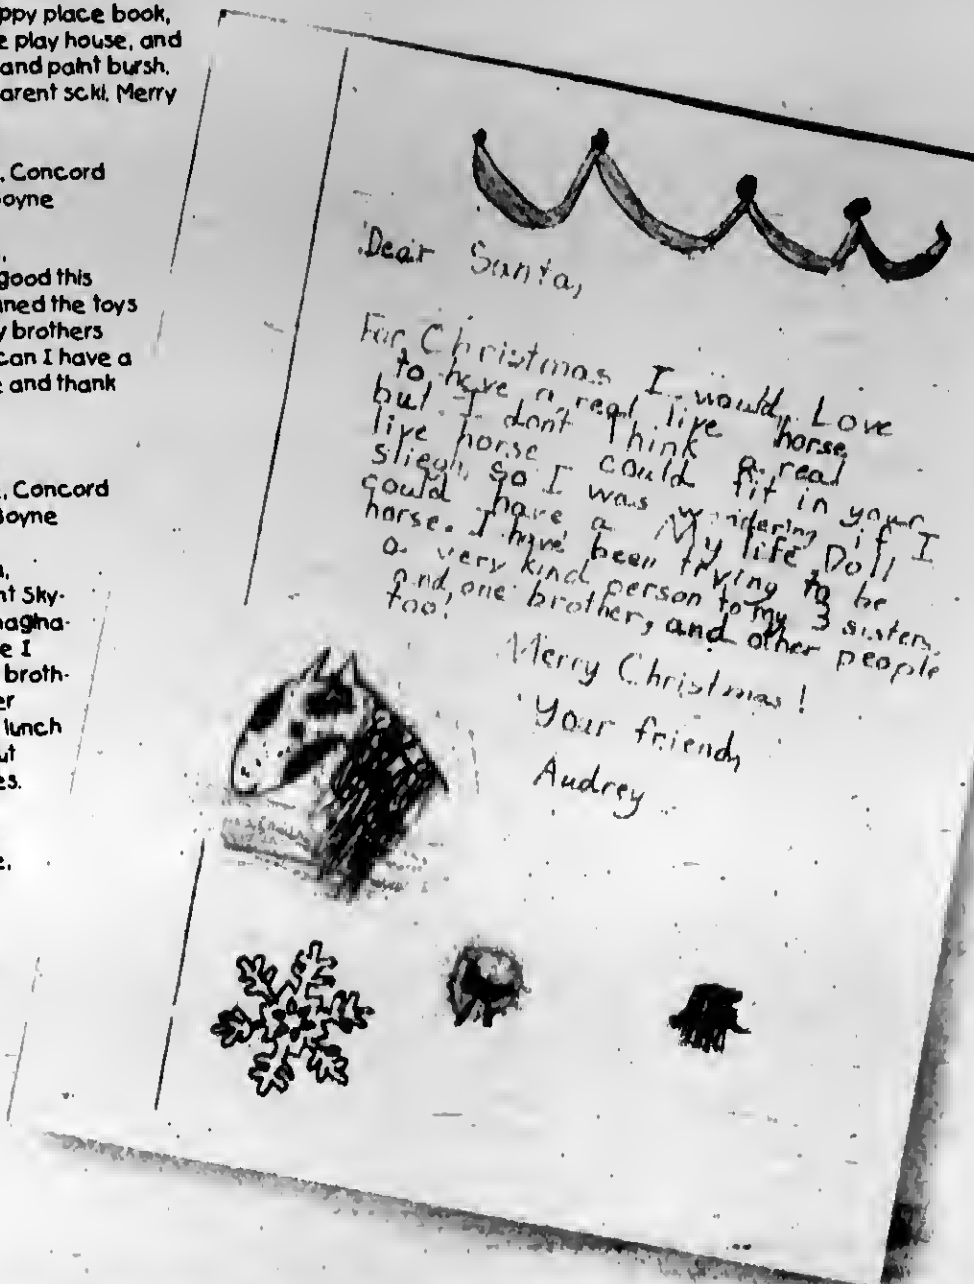 ppy place book,
e play house, and
and paint bursh.
arent scki. Merry
, Concord
oyne
good this
ned the toys
y brothers
can I have a
e and thank
, Concord
Boyne
nt Sky-
nagina-
e I
broth-
er
lunch
ut
es.
e,
Dear Santa,
For Christmas I would Love
to have a real live horse
but I dont Think a real
live horse could fit in your
sliegh so I was wondering if I
could have a My life Doll
horse. I have been trying to be
a very kind person to my 3 sisters,
and one brother, and other people
too!
Merry Christmas!
Your friend,
Audrey